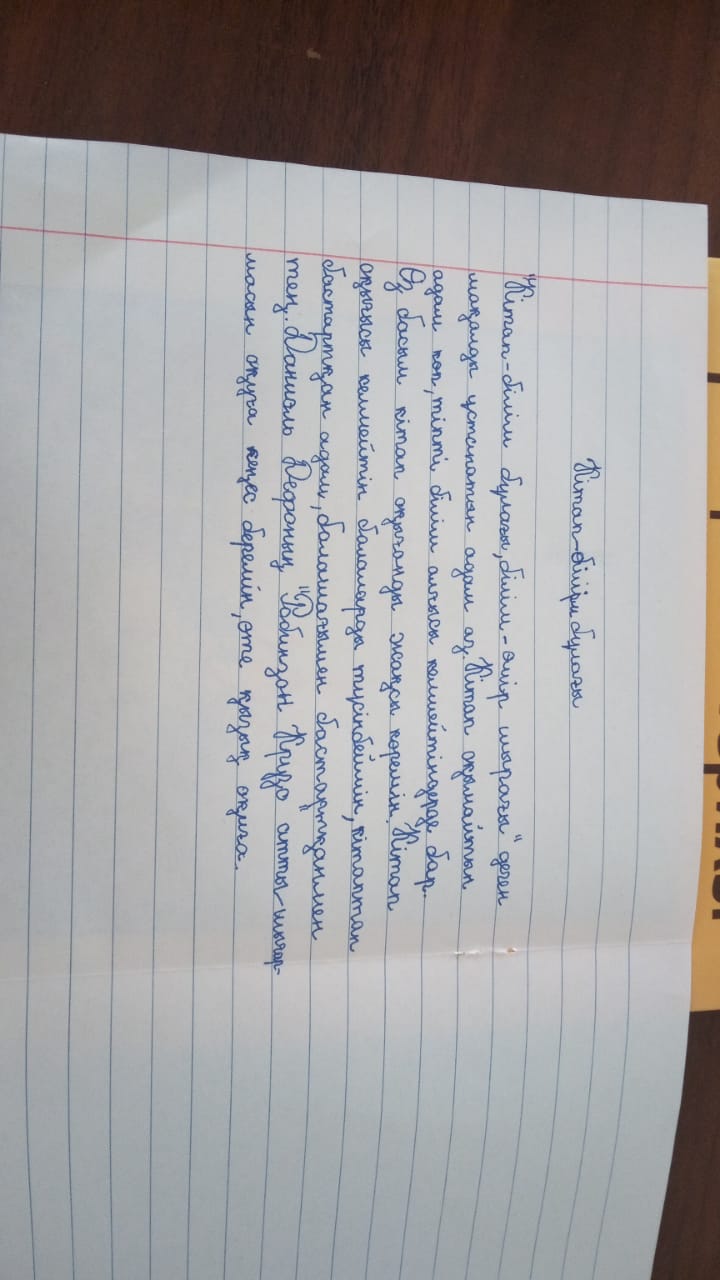 Кітап-білім бұлағы
"Кітап-білім бұлағы, білім-өмір шырағы" деген
мақалды ұстанатын адам аз. Кітап оқымайтын
адам көп, тіпті білім алғысы келмейтіндерде бар.
Өз басым кітап оқығанды жақсы көремін. Кітап
оқығысы келмейтін балаларды түсінбеймін, кітаптан
бастартқан адам, болашағымен бастартқанмен
тең. Даниэль Дефоның "Робинзон Крузо" атты-шығар-
масын оқуға кеңес беремін, өте қызық оқиға.